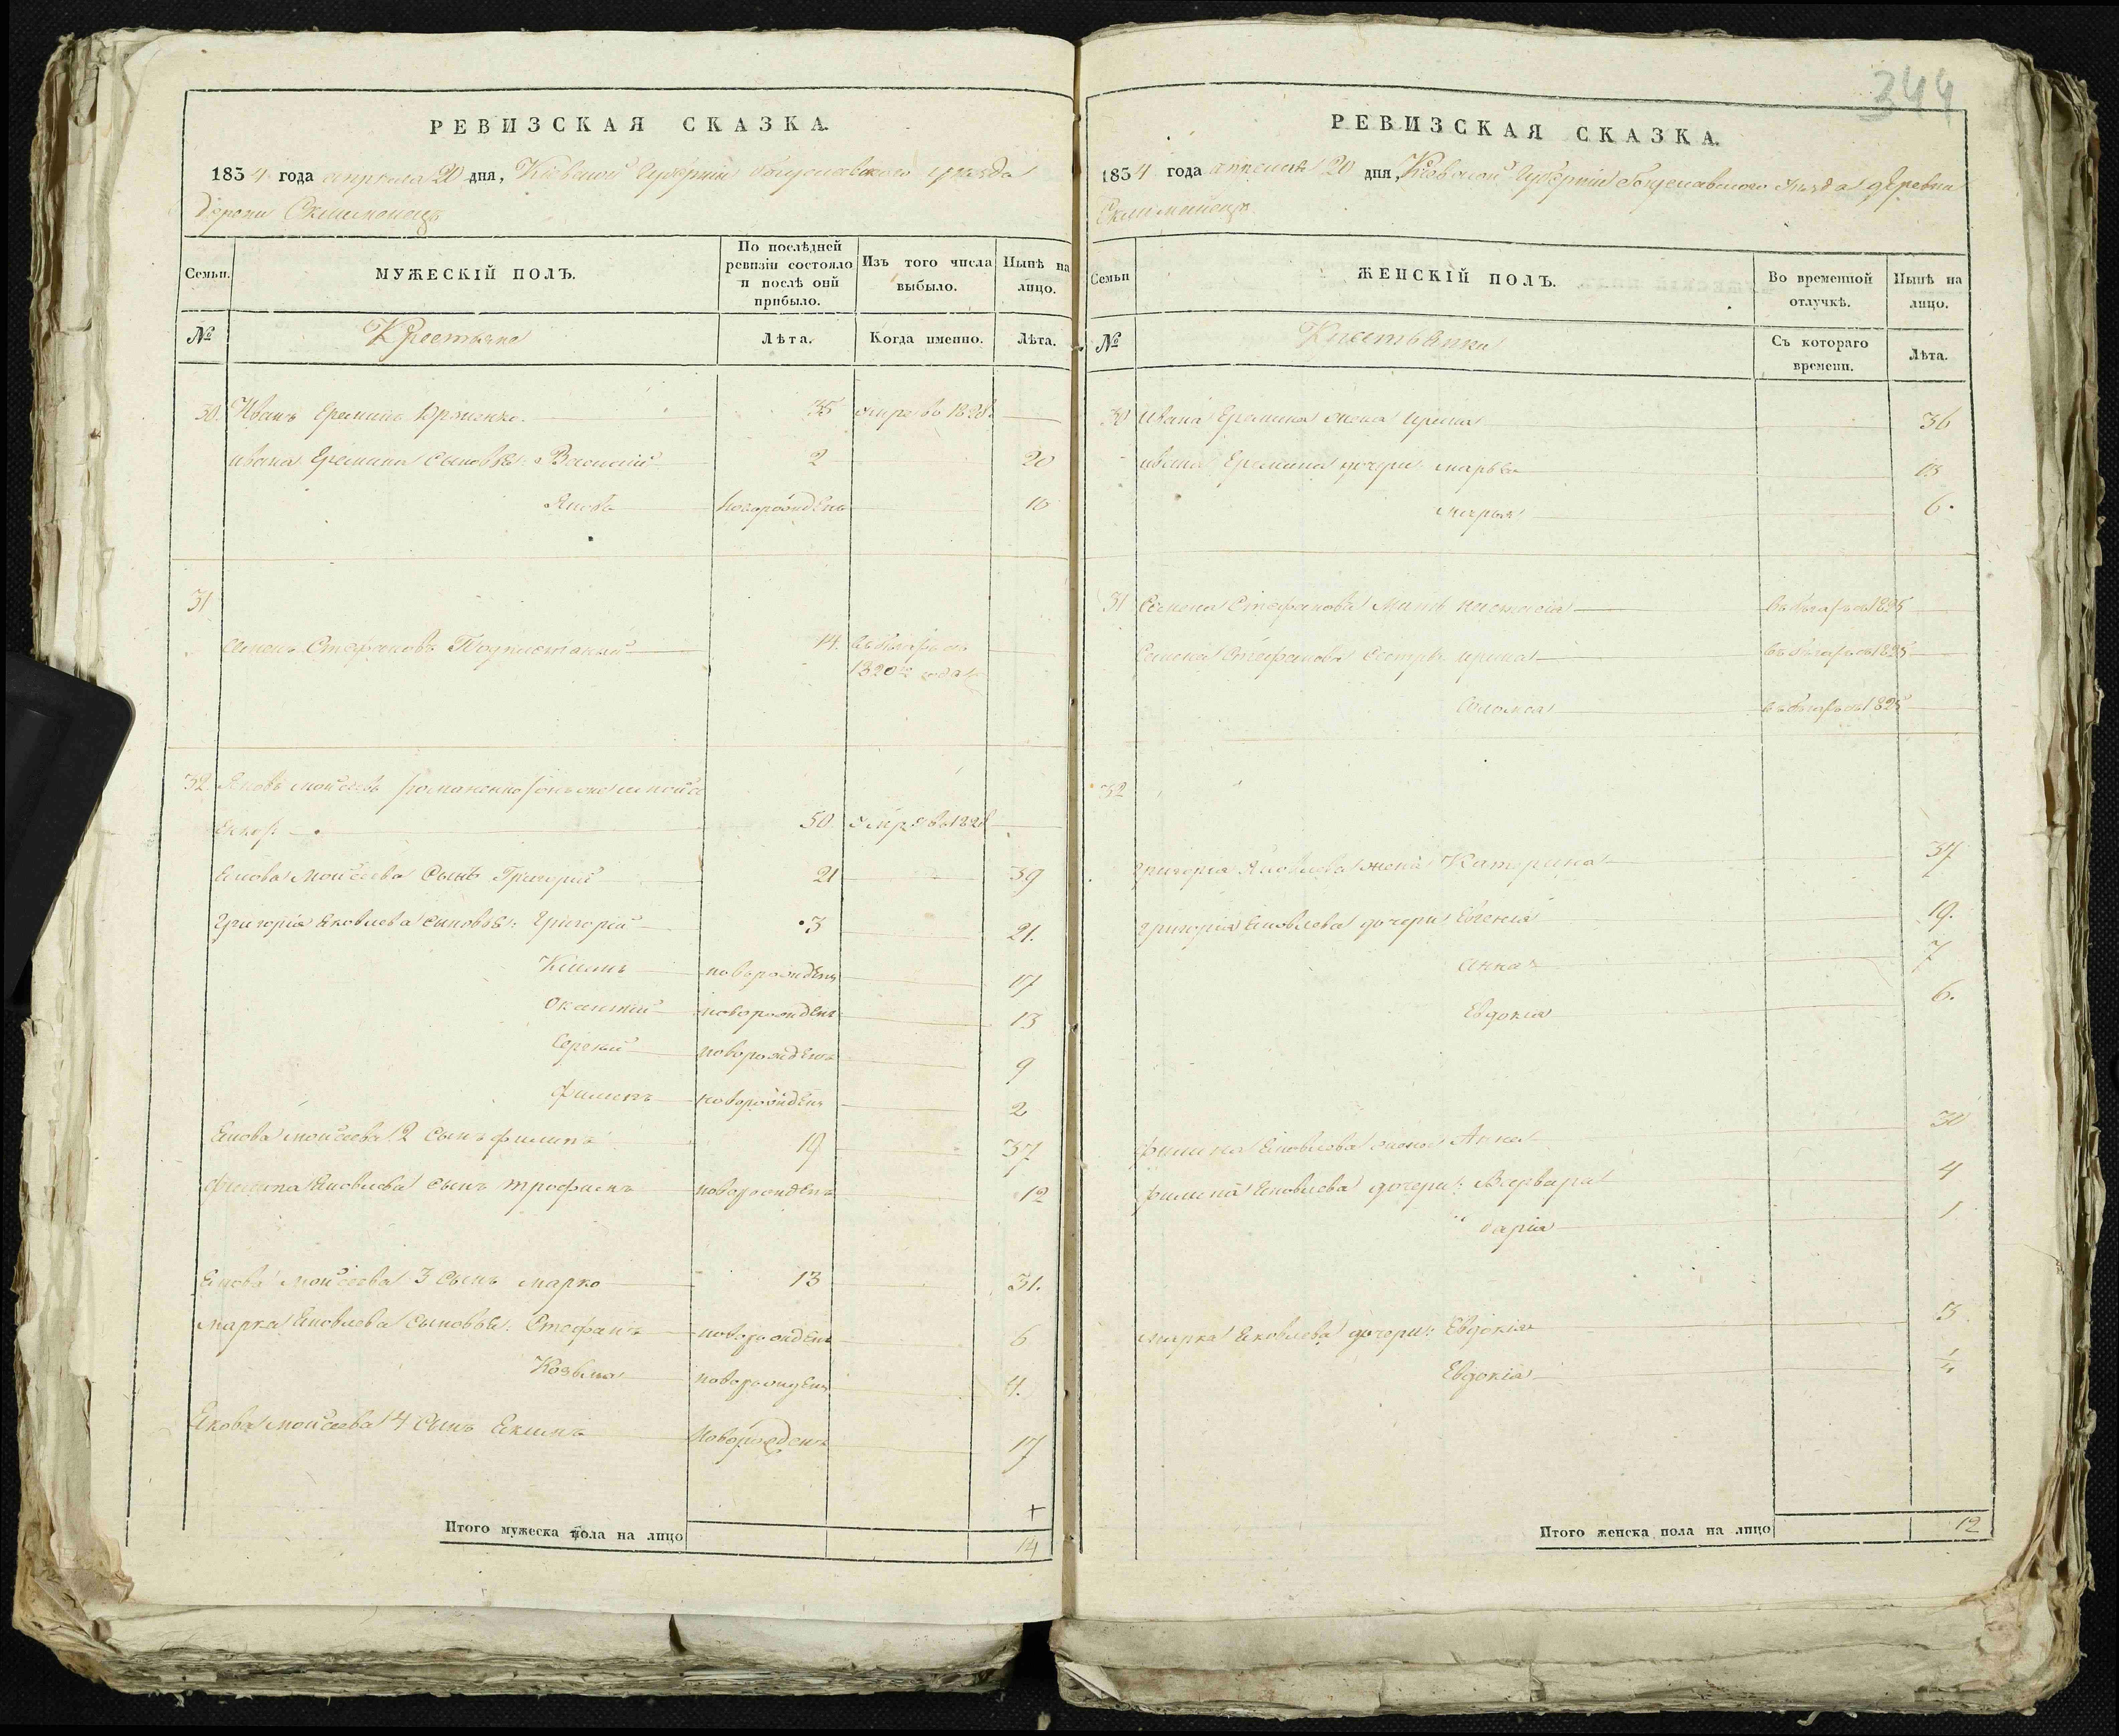 РЕВИЗСКАЯ СКАЗКА.
1834 года апреля 20 дня, Кіевской Губерніи Богуславского уезда
Семьи.
МУЖЕСКІЙ ПОЛЪ.
По послѣдней ревизіи состояло и послѣ оній прибыло.
Изъ того числа выбыло.
Нынѣ на лицо.
№
Крестьяне
Лѣта.
Когда именно.
Лѣта.
30. Иванъ Ереминъ 35 1828
Ивана Еремина сыновья: Василий 2 20
Яковъ новорожденъ 10
31
Семенъ Стефановъ 14. въ бѣгахъ съ
1820 года
32. Яковъ Моисеевъ Романенко
50 1828
Якова Моисеева сынъ Григорий 21 39
Григорія Яковлева сыновья: Григорій 3 21.
Климъ новорожденъ 17
новорожденъ 13
Сергій новорожденъ 9
Филипъ новорожденъ 2
Якова Моисеева 2 сынъ Филипъ 19 37
Филипа Яковлева сынъ Трофимъ новорожденъ 12
Якова Моисеева 3 сынъ Марко 13 31.
Марка Яковлева сыновья: Стефанъ новорожденъ 6
Козьма новорожденъ 4.
Якова Моисеева 4 сынъ Екимъ новорожденъ 17
Итого мужеска пола на лицо 14
344
РЕВИЗСКАЯ СКАЗКА.
1834 года апреля 20 дня, Кіевской Губерніи Богуславского уезда деревни
Семьи
ЖЕНСКІЙ ПОЛЪ.
Во временной отлучкѣ.
Нынѣ на лицо.
№
Крестьянки
Съ котораго времени.
Лѣта.
30 Ивана Еремина жена Ирина 36
Ивана Еремина дочери: Марья 13
Марья 6.
31 Семена Стефанова мать Настасія въ бѣгахъ съ 1825
Семена Стефанова сестры Ирина въ бѣгахъ съ 1825
въ бѣгахъ съ 1825
32
Григорія Яковлева жена Катерина 37
Григорія Яковлева дочери Евгенія 19.
Анна 7
Евдокія 6.
Филипа Яковлева жена Анна 30
Филипа Яковлева дочери: Варвара 4
Дарія 1
Марка Яковлева дочери: Евдокія 3
Евдокія 1/4
Итого женска пола на лицо 12